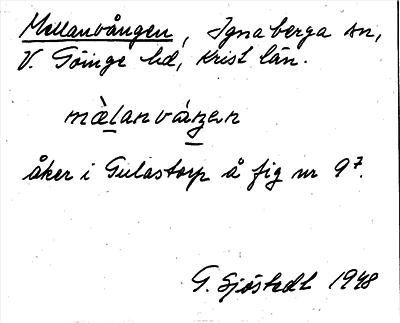 Mellanvången, Ignaberga sn,
V. Göinge hd, Krist län.
mà̱lanváŋen
åker i Gulastorp å fig nr 9⁷.
G. Sjöstedt 1948